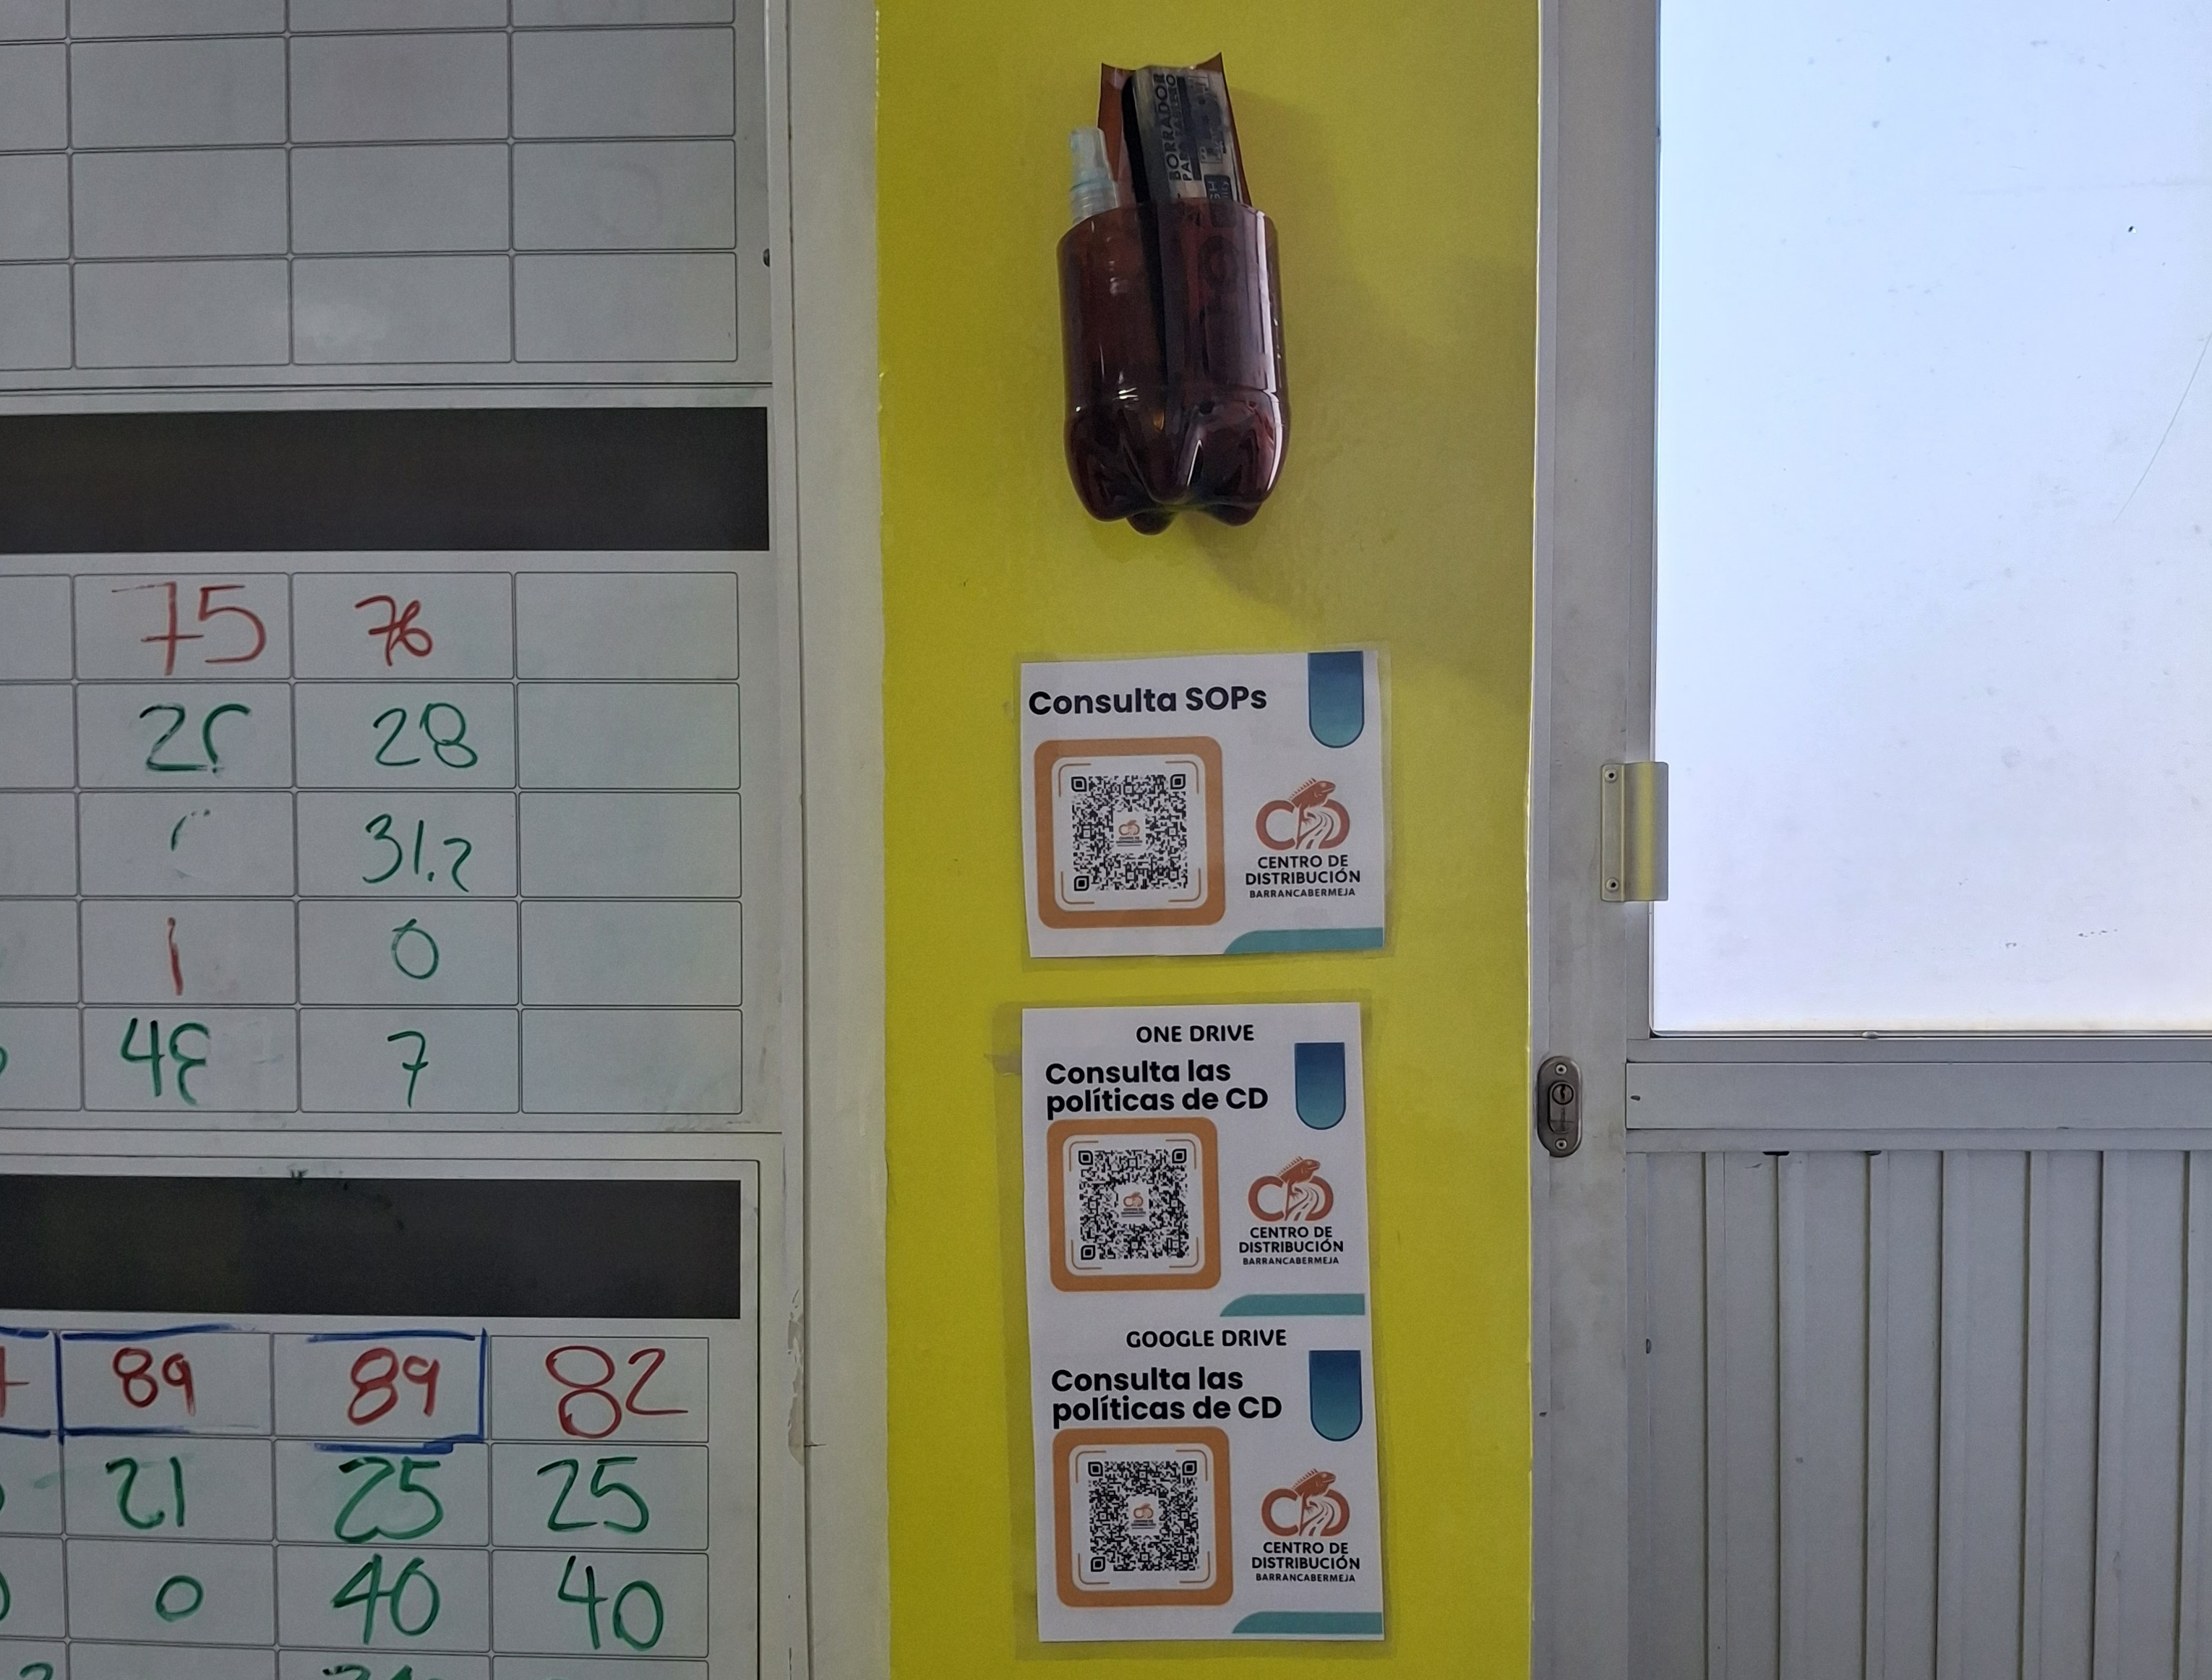 75 76
28
31.2
1 0
7
89 89 82
21 25 25
0 40 40
BORRADOR
Consulta SOPs
CENTRO DE
DISTRIBUCIÓN
BARRANCABERMEJA
ONE DRIVE
Consulta las
políticas de CD
CENTRO DE
DISTRIBUCIÓN
BARRANCABERMEJA
GOOGLE DRIVE
Consulta las
políticas de CD
CENTRO DE
DISTRIBUCIÓN
BARRANCABERMEJA